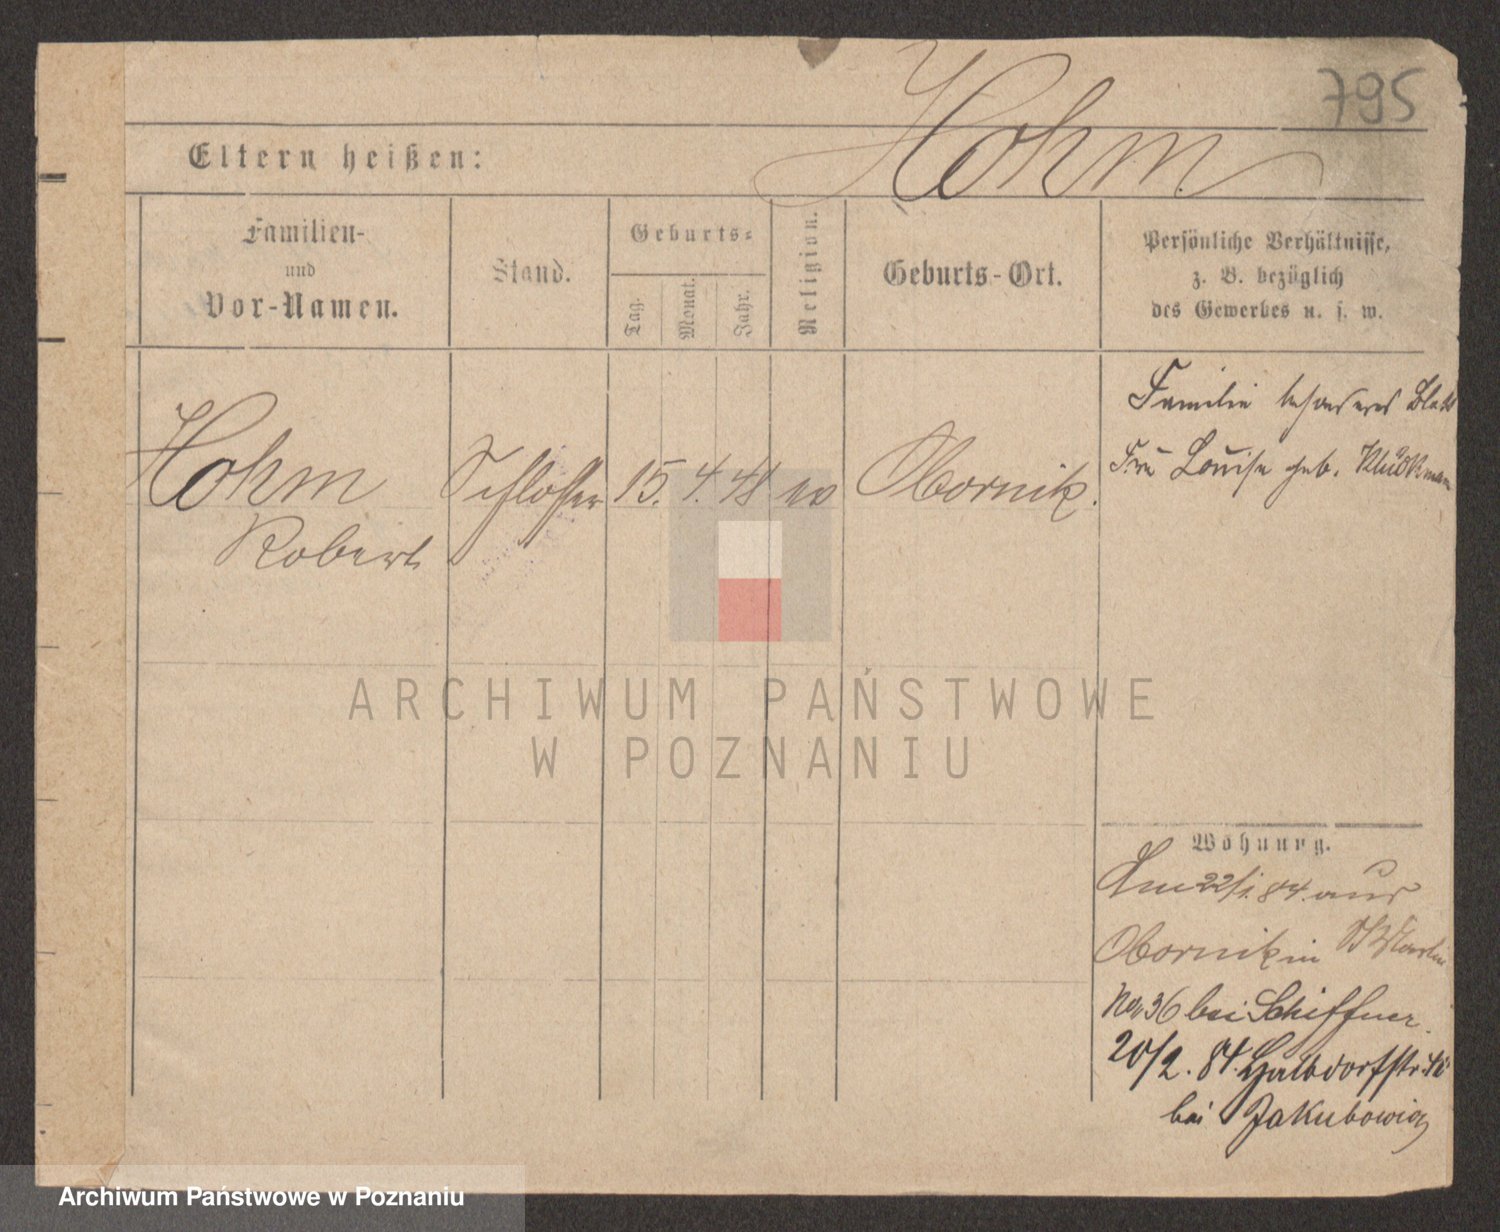 795
Hohm
Eltern heißen:
Familien-
und
Vor-Namen.
Stand.
Geburts-
Tag.
Monat.
Jahr.
Religion.
Geburts-Ort.
Persönliche Verhältnisse,
z. B. bezüglich
des Gewerbes u. s. w.
Hohm
Robert
Schlosser
15. 4. 48
ev
Obornik.
Familie besonderes Blatt
Frau Louise geb.
Wohnung.
Am 22/1. 84. aus
Obornik in St Martin
No 36 bei Schiffner.
20/2. 84. Halbdorfstr.
bei Jakubowicz
ARCHIWUM PAŃSTWOWE
W POZNANIU
Archiwum Państwowe w Poznaniu